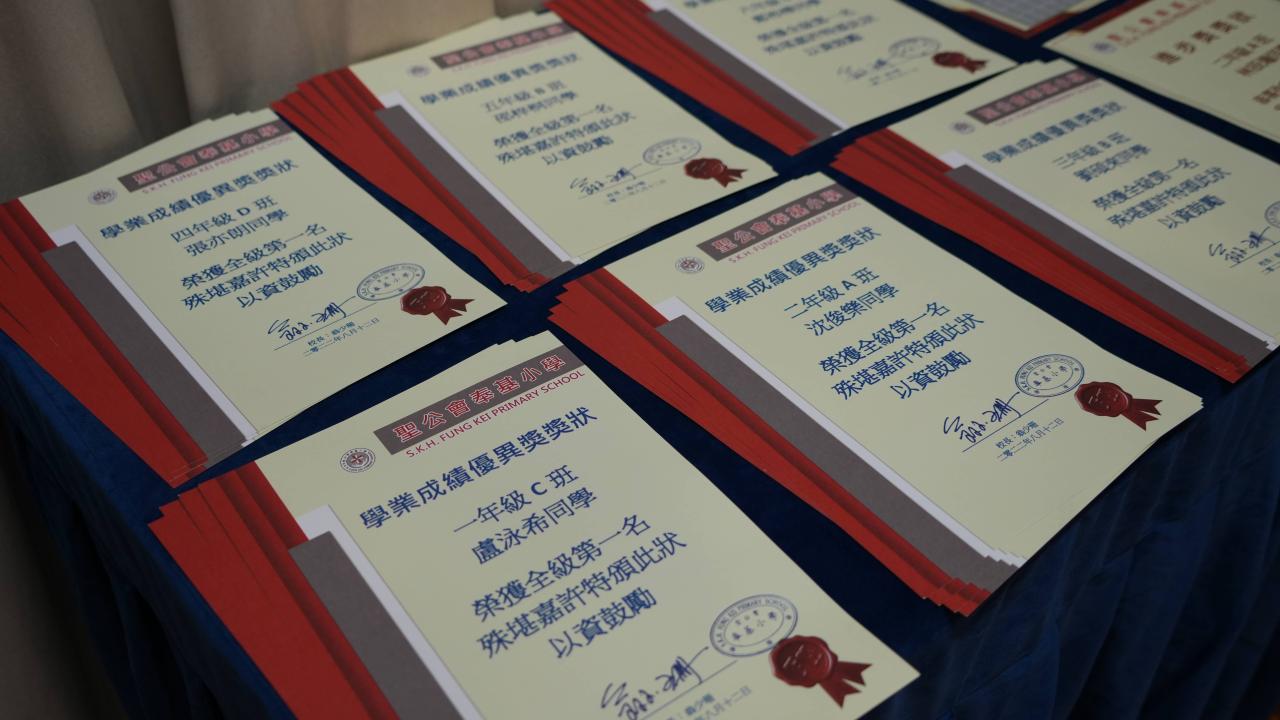 聖公會奉基小學
S.K.H. FUNG KEI PRIMARY SCHOOL
學業成績優異獎獎狀
四年級 D 班
張亦朗同學
榮獲全級第一名
殊堪嘉許特頒此狀
以資鼓勵
二零二二年八月十二日
學業成績優異獎獎狀
五年級 B 班
榮獲全級第一名
殊堪嘉許特頒此狀
以資鼓勵
榮獲全級第一名
殊堪嘉許特頒此狀
以資鼓勵
聖公會奉基小學
S.K.H. FUNG KEI PRIMARY SCHOOL
學業成績優異獎獎狀
一年級 C 班
盧泳希同學
榮獲全級第一名
殊堪嘉許特頒此狀
以資鼓勵
聖公會奉基小學
S.K.H. FUNG KEI PRIMARY SCHOOL
學業成績優異獎獎狀
二年級 A 班
沈俊樂同學
榮獲全級第一名
殊堪嘉許特頒此狀
以資鼓勵
二零二二年八月十二日
學業成績優異獎獎狀
三年級 B 班
榮獲全級第一名
殊堪嘉許特頒此狀
以資鼓勵
進步獎獎狀